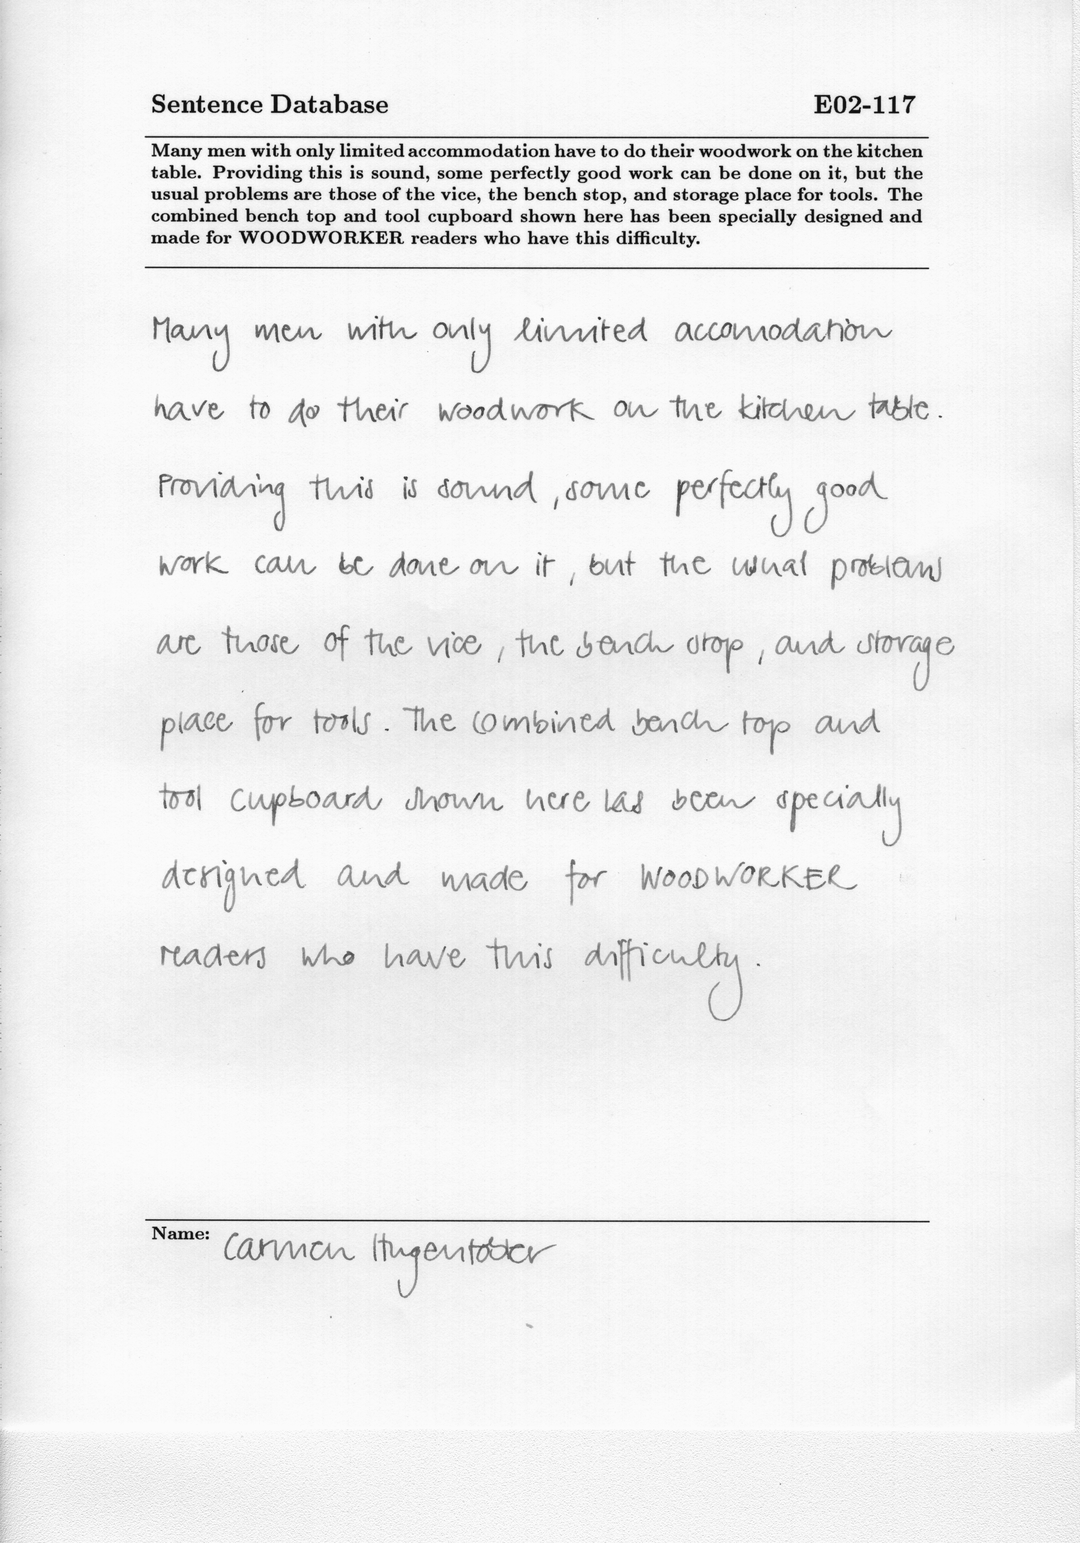 Sentence Database E02-117
Many men with only limited accommodation have to do their woodwork on the kitchen
table. Providing this is sound, some perfectly good work can be done on it, but the
usual problems are those of the vice, the bench stop, and storage place for tools. The
combined bench top and tool cupboard shown here has been specially designed and
made for WOODWORKER readers who have this difficulty.
Many men with only limited accomodation
have to do their woodwork on the kitchen table.
Providing this is sound, some perfectly good
work can be done on it, but the usual problems
are those of the vice, the bench stop, and storage
place for tools. The combined bench top and
tool cupboard shown here has been specially
designed and made for WOODWORKER
readers who have this difficulty.
Name: Carmen Hugentobler